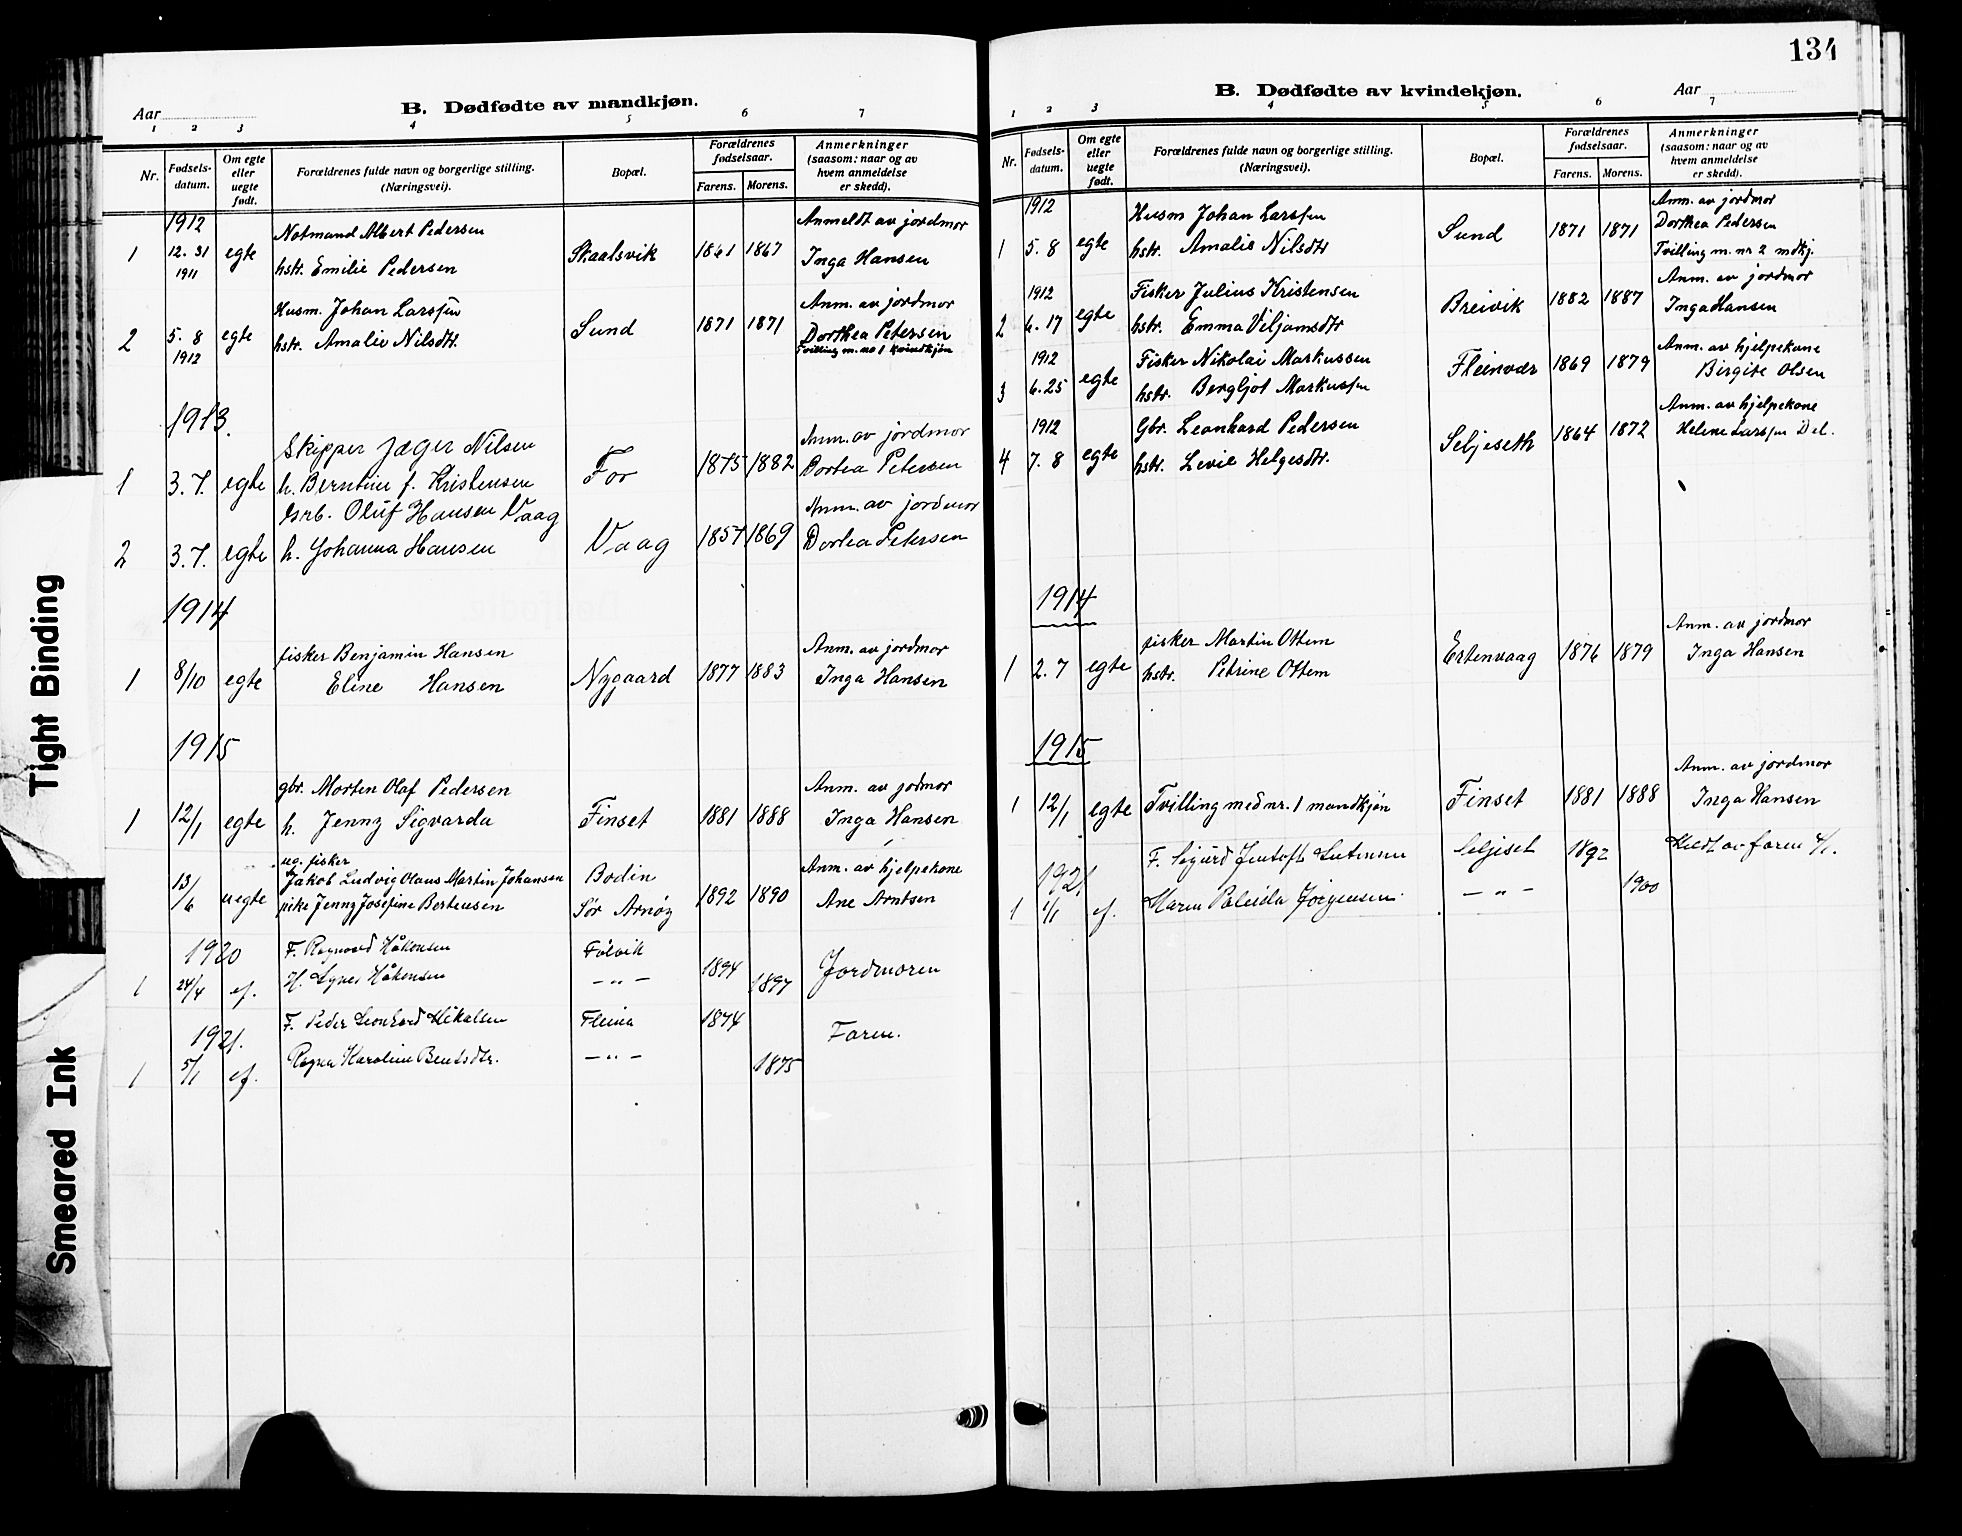 Tight Binding
Smeared Ink
Aar
B. Dødfødte av mandkjøn.
1 2 3 4 5 6 7
Nr.
Fødsels-
datum.
Om egte
eller
uegte
født.
Forældrenes fulde navn og borgerlige stilling.
(Næringsvei).
Bopæl.
Forældrenes
fødselsaar.
Farens. Morens.
Anmerkninger
(saasom: naar og av
hvem anmeldelse
er skedd).
1912
Notmand Albert Pedersen Anmeldt av jordmor
1 12. 31 egte hstr. Emilie Pedersen Skaalsvik 1861 1867 Inga Hansen
1911
Husm. Johan Larssen Anm. av jordmor
2 5. 8 egte hstr. Amalie Nilsdtr. Sund 1871 1871 Dorthea Petersen
1912 Tvilling m. no 1 kvindkjøn
1913.
Skipper Jæger Nilsen Anm. av jordmor
1 3. 7. egte h. Berntine f. Kristensen For 1875 1882 Dortea Petersen
Grb. Oluf Hansen Vaag Anm. av jordmor
2 3. 7. egte h. Johanna Hansen Vaag 1857 1869 Dortea Petersen
1914
fisker Benjamin Hansen Anm. av jordmor
1 8/10 egte Eline Hansen Nygaard 1877 1883 Inga Hansen
1915
gbr. Morten Olaf Pedersen Anm. av jordmor
1 12/1 egte h. Jenny Sigvarda Finset 1881 1888 Inga Hansen
ug. fisker
Jakob Ludvig Olaus Martin Johansen Bodin Anm. av hjelpekone
13/6 uegte pike Jenny Josefine Berteusen Sør Arnøy 1892 1890 Ane Arntsen
1920 F. Ragnvard Håkonsen Følvik
1 24/4 ef. H. Agnes Håkensen — „ — 1894 1897 Jordmoren
1921. F. Peder Leonhard Mikalsen Fleina 1874 Faren.
1 5/1 ef. Ragna Karoline Bentsdtr. — „ — 1875
134
B. Dødfødte av kvindekjøn.
Aar
1 2 3 4 5 6 7
Nr.
Fødsels-
datum.
Om egte
eller
uegte
født.
Forældrenes fulde navn og borgerlige stilling.
(Næringsvei).
Bopæl.
Forældrenes
fødselsaar.
Farens. Morens.
Anmerkninger
(saasom: naar og av
hvem anmeldelse
er skedd).
1912 Husm Johan Larssen Anm. av jordmor
Dorthea Pedersen
1 5. 8 egte hstr. Amalie Nilsdtr Sund 1871 1871 Tvilling m. nr 2 mdkj.
1912 Fisker Julius Kristensen Anm. av jordmor
2 6. 17 egte hstr. Emma Viljamsdtr Breivik 1882 1887 Inga Hansen
1912 Fisker Nikolai Markussen Anm. av hjelpekone
3 6. 25 egte hstr. Bergljot Markussen Fleinvær 1869 1879 Birgite Olsen
1912 Gbr. Leonhard Pedersen Anm. av hjelpekone
4 7. 8 egte hstr. Levie Helgesdtr. Seljeseth 1864 1872 Helene Larssen Del.
1914
fisker Martin Ottem Anm. av jordmor
1 2. 7 egte hstr. Petrine Ottem Ertenvaag 1876 1879 Inga Hansen
1915
Anm. av jordmor
1 12/1 egte Tvilling med nr. 1 mandkjøn Finset 1881 1888 Inga Hansen
1921 F. Sigurd Jentoft Seljeset 1892 Meldt av faren 4/1.
1 1/1 ef. Maren Jørgensen — „ — 1900